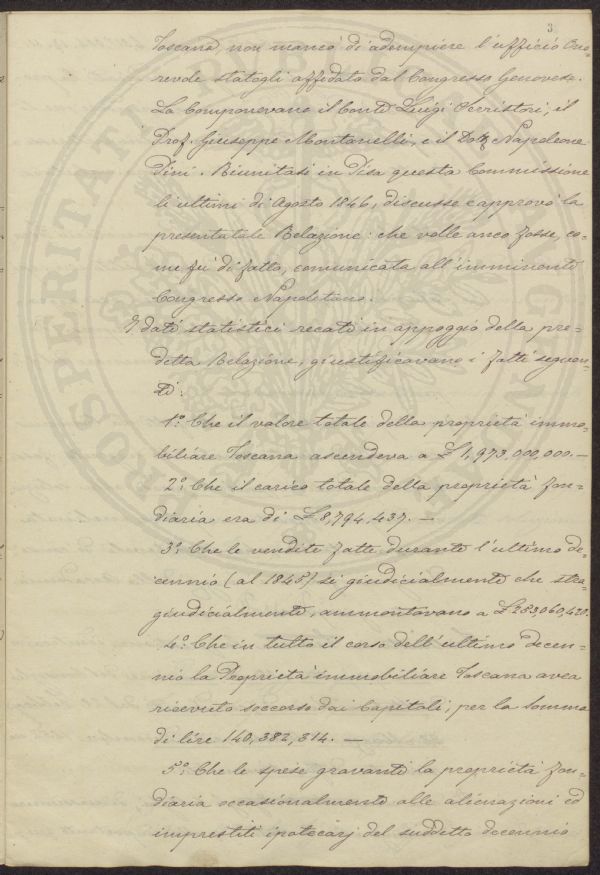 3
Toscana non mancò di adempiere l'ufficio Ono-
revole statogli affidato dal Congresso Genovese.
La Componevano il Conte Luigi Serristori, il
Prof. Giuseppe Montanelli, e il Dott. Napoleone
Pini. Riunitasi in Pisa questa Commissione
li ultimi di Agosto 1846, discusse e approvò la
presentatale Relazione: che volle anco fosse, co-
me fu di fatto, comunicata all'imminente
Congresso Napoletano.
I dati statistici recati in appoggio della pre-
detta Relazione, giustificavano i fatti seguen-
ti:
1º. Che il valore totale della proprietà immo-
biliare Toscana ascendeva a £ 1,973,000,000.—
2º. Che il carico totale della proprietà fon-
diaria era di £ 8,794,437.—
3º. Che le vendite fatte, durante l'ultimo de-
cennio (al 1845) sì giudicialmente che stra-
giudicialmente, ammontavano a £ 253,060,420.
4º. Che in tutto il corso dell'ultimo decen-
nio la Proprietà immobiliare Toscana avea
ricevuto soccorso dai Capitali, per la somma
di lire 140,382,314.—
5º. Che le spese gravanti la proprietà fon-
diaria occasionalmente alle alienazioni ed
imprestiti ipotecarj del suddetto decennio